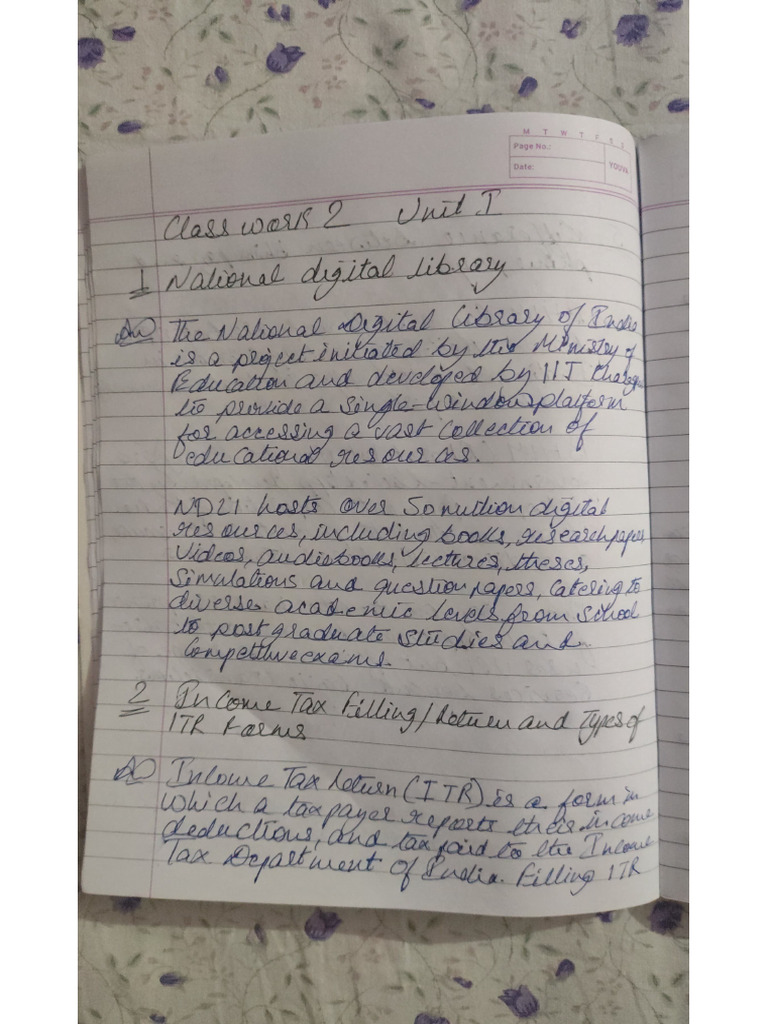 M T W T F S S
Page No.:
Date:
YOUVA
Class work 2 Unit I
1 National digital library
Ans The National Digital Library of India
is a project initiated by the Ministry of
Education and developed by IIT Kharag
to provide a single-window platform
for accessing a vast collection of
educational resources.
NDLI hosts over 50 million digital
resources, including books, research papers
videos, audiobooks, lectures, theses,
simulations and question papers, catering to
diverse academic levels from school
to postgraduate studies and
competitive exams.
2 Income Tax Filling/Return and Types of
ITR Forms
Ans Income Tax Return (ITR) is a form in
which a taxpayer reports their income
deductions, and tax paid to the Income
Tax Department of India. Filling ITR